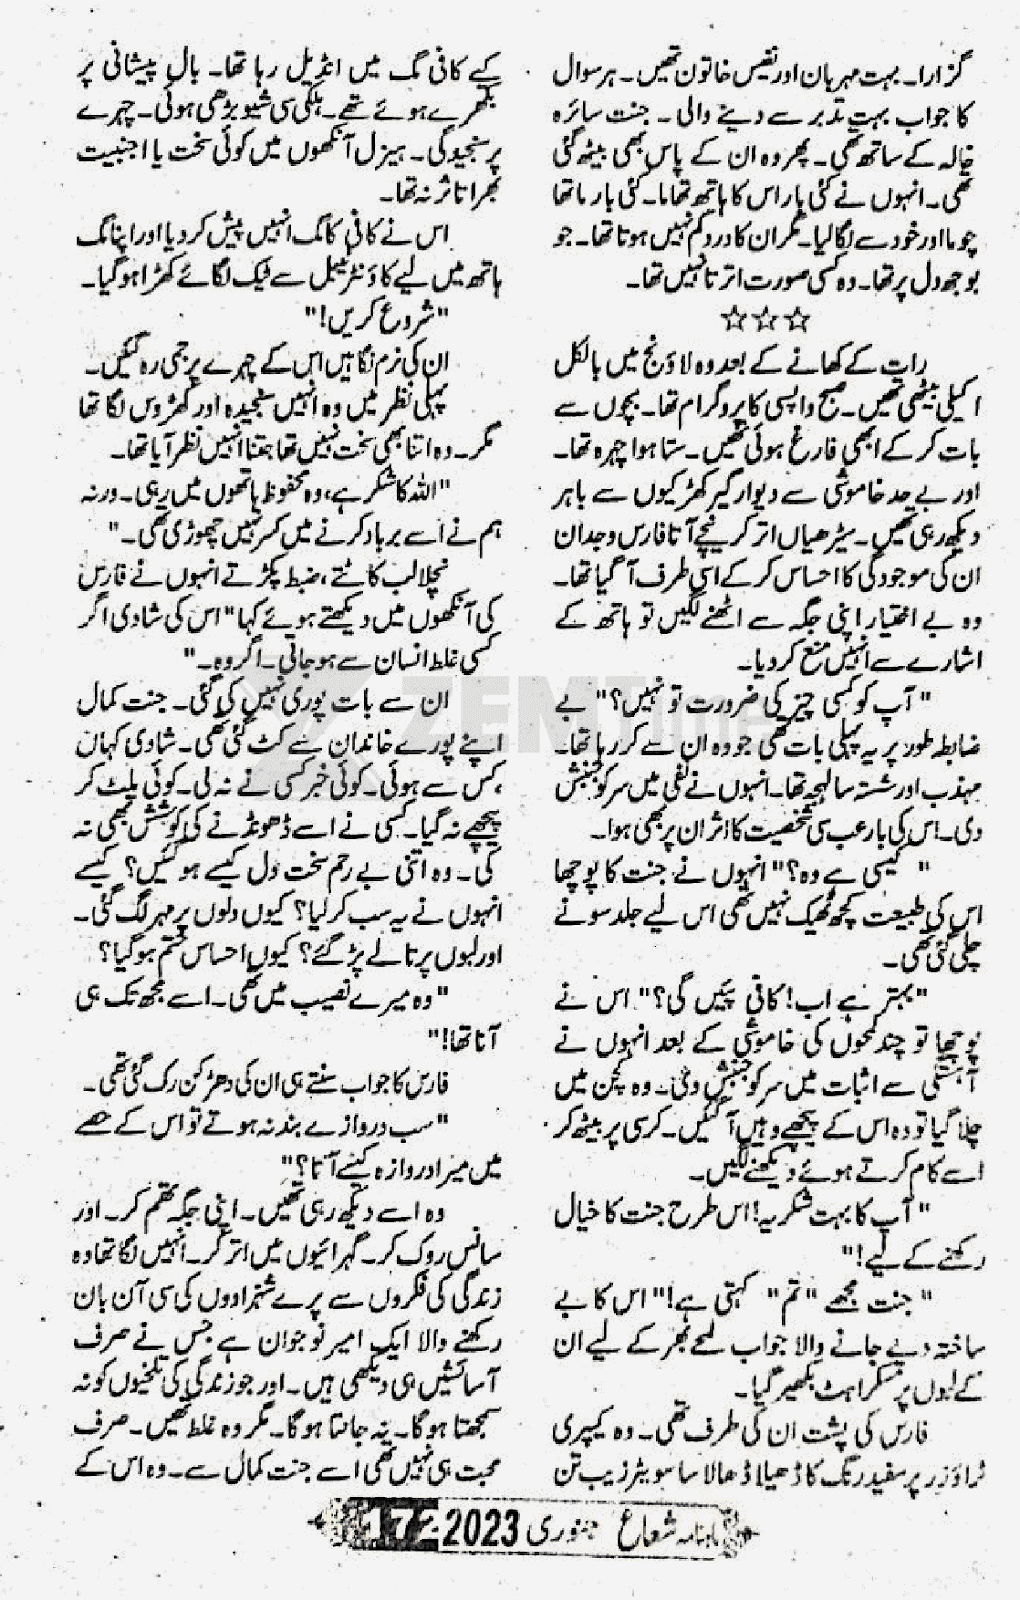 گزارا۔ بہت مہربان اور نفیس خاتون تھیں۔ ہر سوال
کا جواب بہت تدبر سے دینے والی۔ جنت سائرہ
خالہ کے ساتھ تھی۔ پھر وہ ان کے پاس بھی بیٹھ گئی
تھی۔ انہوں نے کئی بار اس کا ہاتھ تھاما۔ کئی بار ماتھا
چوما اور خود سے لگا لیا۔ مگر ان کا درد کم نہیں ہوتا تھا۔ جو
بوجھ دل پر تھا۔ وہ کسی صورت اترتا نہیں تھا۔
☆☆☆
رات کے کھانے کے بعد وہ لاؤنج میں بالکل
اکیلی بیٹھی تھیں۔ صبح واپسی کا پروگرام تھا۔ بچوں سے
بات کر کے ابھی فارغ ہوئی تھیں۔ ستا ہوا چہرہ تھا۔
اور بے حد خاموشی سے دیوار گیر کھڑکیوں سے باہر
دیکھ رہی تھیں۔ سیڑھیاں اتر کر نیچے آتا فارس وجدان
ان کی موجودگی کا احساس کر کے اسی طرف آ گیا تھا۔
وہ بے اختیار اپنی جگہ سے اٹھنے لگیں تو ہاتھ کے
اشارے سے انہیں منع کر دیا۔
"آپ کو کسی چیز کی ضرورت تو نہیں؟" بے
ضابطہ طور پر یہ پہلی بات تھی جو وہ ان سے کر رہا تھا۔
مہذب اور شستہ سا لہجہ تھا۔ انہوں نے نفی میں سر کو جنبش
دی۔ اس کی بارعب سی شخصیت کا اثر ان پر بھی ہوا۔
"کیسی ہے وہ؟" انہوں نے جنت کا پوچھا
اس کی طبیعت کچھ ٹھیک نہیں تھی اس لیے جلد سونے
چلی گئی تھی۔
"بہتر ہے اب! کافی پئیں گی؟" اس نے
پوچھا تو چند لمحوں کی خاموشی کے بعد انہوں نے
آہستگی سے اثبات میں سر کو جنبش دی۔ وہ کچن میں
چلا گیا تو وہ اس کے پیچھے وہیں آ گئیں۔ کرسی پر بیٹھ کر
اسے کام کرتے ہوئے دیکھنے لگیں۔
"آپ کا بہت شکریہ! اس طرح جنت کا خیال
رکھنے کے لیے!"
"جنت مجھے "تم" کہتی ہے!" اس کا بے
ساختہ دیے جانے والا جواب لمحے بھر کے لیے ان
کے لبوں پر مسکراہٹ بکھیر گیا۔
فارس کی پشت ان کی طرف تھی۔ وہ کیپری
ٹراؤزر پر سفید رنگ کا ڈھیلا ڈھالا سا سویٹر زیب تن
کیے کافی مگ میں انڈیل رہا تھا۔ بال پیشانی پر
بکھرے ہوئے تھے۔ ہلکی سی شیو بڑھی ہوئی۔ چہرے
پر سنجیدگی۔ ہیزل آنکھوں میں کوئی سخت یا اجنبیت
بھرا تاثر نہ تھا۔
اس نے کافی کا مگ انہیں پیش کر دیا اور اپنا مگ
ہاتھ میں لیے کاؤنٹر ٹیبل سے ٹیک لگائے کھڑا ہو گیا۔
"شروع کریں!"
ان کی نرم نگاہیں اس کے چہرے پر جمی رہ گئیں۔
پہلی نظر میں وہ انہیں سنجیدہ اور کھڑوس لگا تھا
مگر۔ وہ اتنا بھی سخت نہیں تھا جتنا انہیں نظر آیا تھا۔
"اللہ کا شکر ہے، وہ محفوظ ہاتھوں میں رہی۔ ورنہ
ہم نے اسے برباد کرنے میں کسر نہیں چھوڑی تھی۔"
نچلا لب کاٹتے، ضبط پکڑتے انہوں نے فارس
کی آنکھوں میں دیکھتے ہوئے کہا "اس کی شادی اگر
کسی غلط انسان سے ہو جاتی۔ اگر وہ۔"
ان سے بات پوری نہیں کی گئی۔ جنت کمال
اپنے پورے خاندان سے کٹ گئی تھی۔ شادی کہاں
، کس سے ہوئی۔ کوئی خبر کسی نے نہ لی۔ کوئی پلٹ کر
پیچھے نہ گیا۔ کسی نے اسے ڈھونڈنے کی کوشش بھی نہ
کی۔ وہ اتنی بے رحم سخت دل کیسے ہو گئیں؟ کیسے
انہوں نے یہ سب کر لیا؟ کیوں دلوں پر مہر لگ گئی۔
اور لبوں پر تالے پڑ گئے؟ کیوں احساس ختم ہو گیا؟
"وہ میرے نصیب میں تھی۔ اسے مجھ تک ہی
آنا تھا!"
فارس کا جواب سنتے ہی ان کی دھڑکن رک گئی تھی۔
"سب دروازے بند نہ ہوتے تو اس کے حصے
میں میرا دروازہ کیسے آتا؟"
وہ اسے دیکھ رہی تھیں۔ اپنی جگہ تھم کر۔ اور
سانس روک کر۔ گہرائیوں میں اتر کر۔ انہیں لگا تھا وہ
زندگی کی فکروں سے پرے شہزادوں کی سی آن بان
رکھنے والا ایک امیر نوجوان ہے جس نے صرف
آسائشیں ہی دیکھی ہیں۔ اور جو زندگی کی تلخیوں کو نہ
سمجھتا ہو گا۔ نہ جانتا ہو گا۔ مگر وہ غلط تھیں۔ صرف
محبت ہی نہیں تھی اسے جنت کمال سے۔ وہ اس کے
ماہنامہ شعاع جنوری 2023 172
ZEMTime